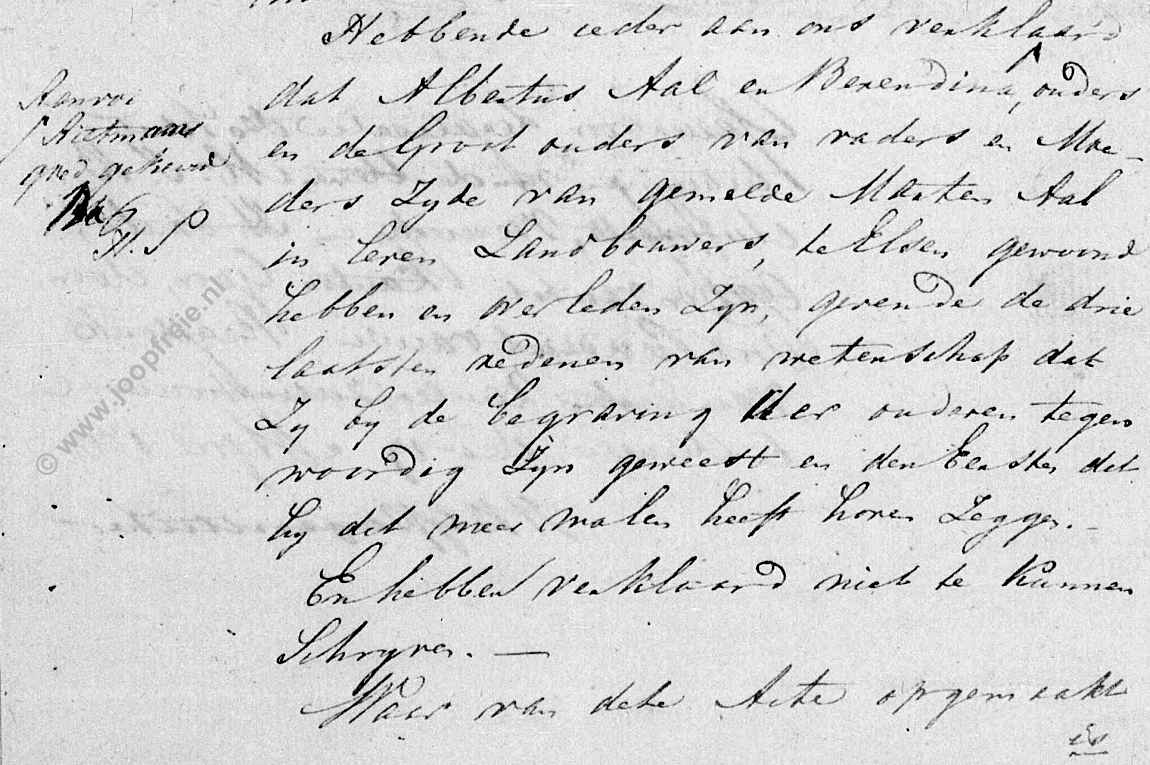 Hebbende ieder aan ons verklaard
dat Albertus Aal en Berendina, ouders
en de Groot ouders van vaders en Moe-
ders Zyde van gemelde Marten Aal
in leven Landbouwers, te Elsen gewoond
hebben en overleden Zyn, gevende de drie
laatsten redenen van wetenschap dat
Zy by de begraving der ouderen tegen
woordig Zyn geweest en den Eersten dat
hy dit meer malen heeft horen Zeggen.-
En hebben verklaard niet te kunnen
Schryven. —
Waar van deze Acte opgemaakt
is
goed gekeurd
H.S
© www.joopfrqie.nl